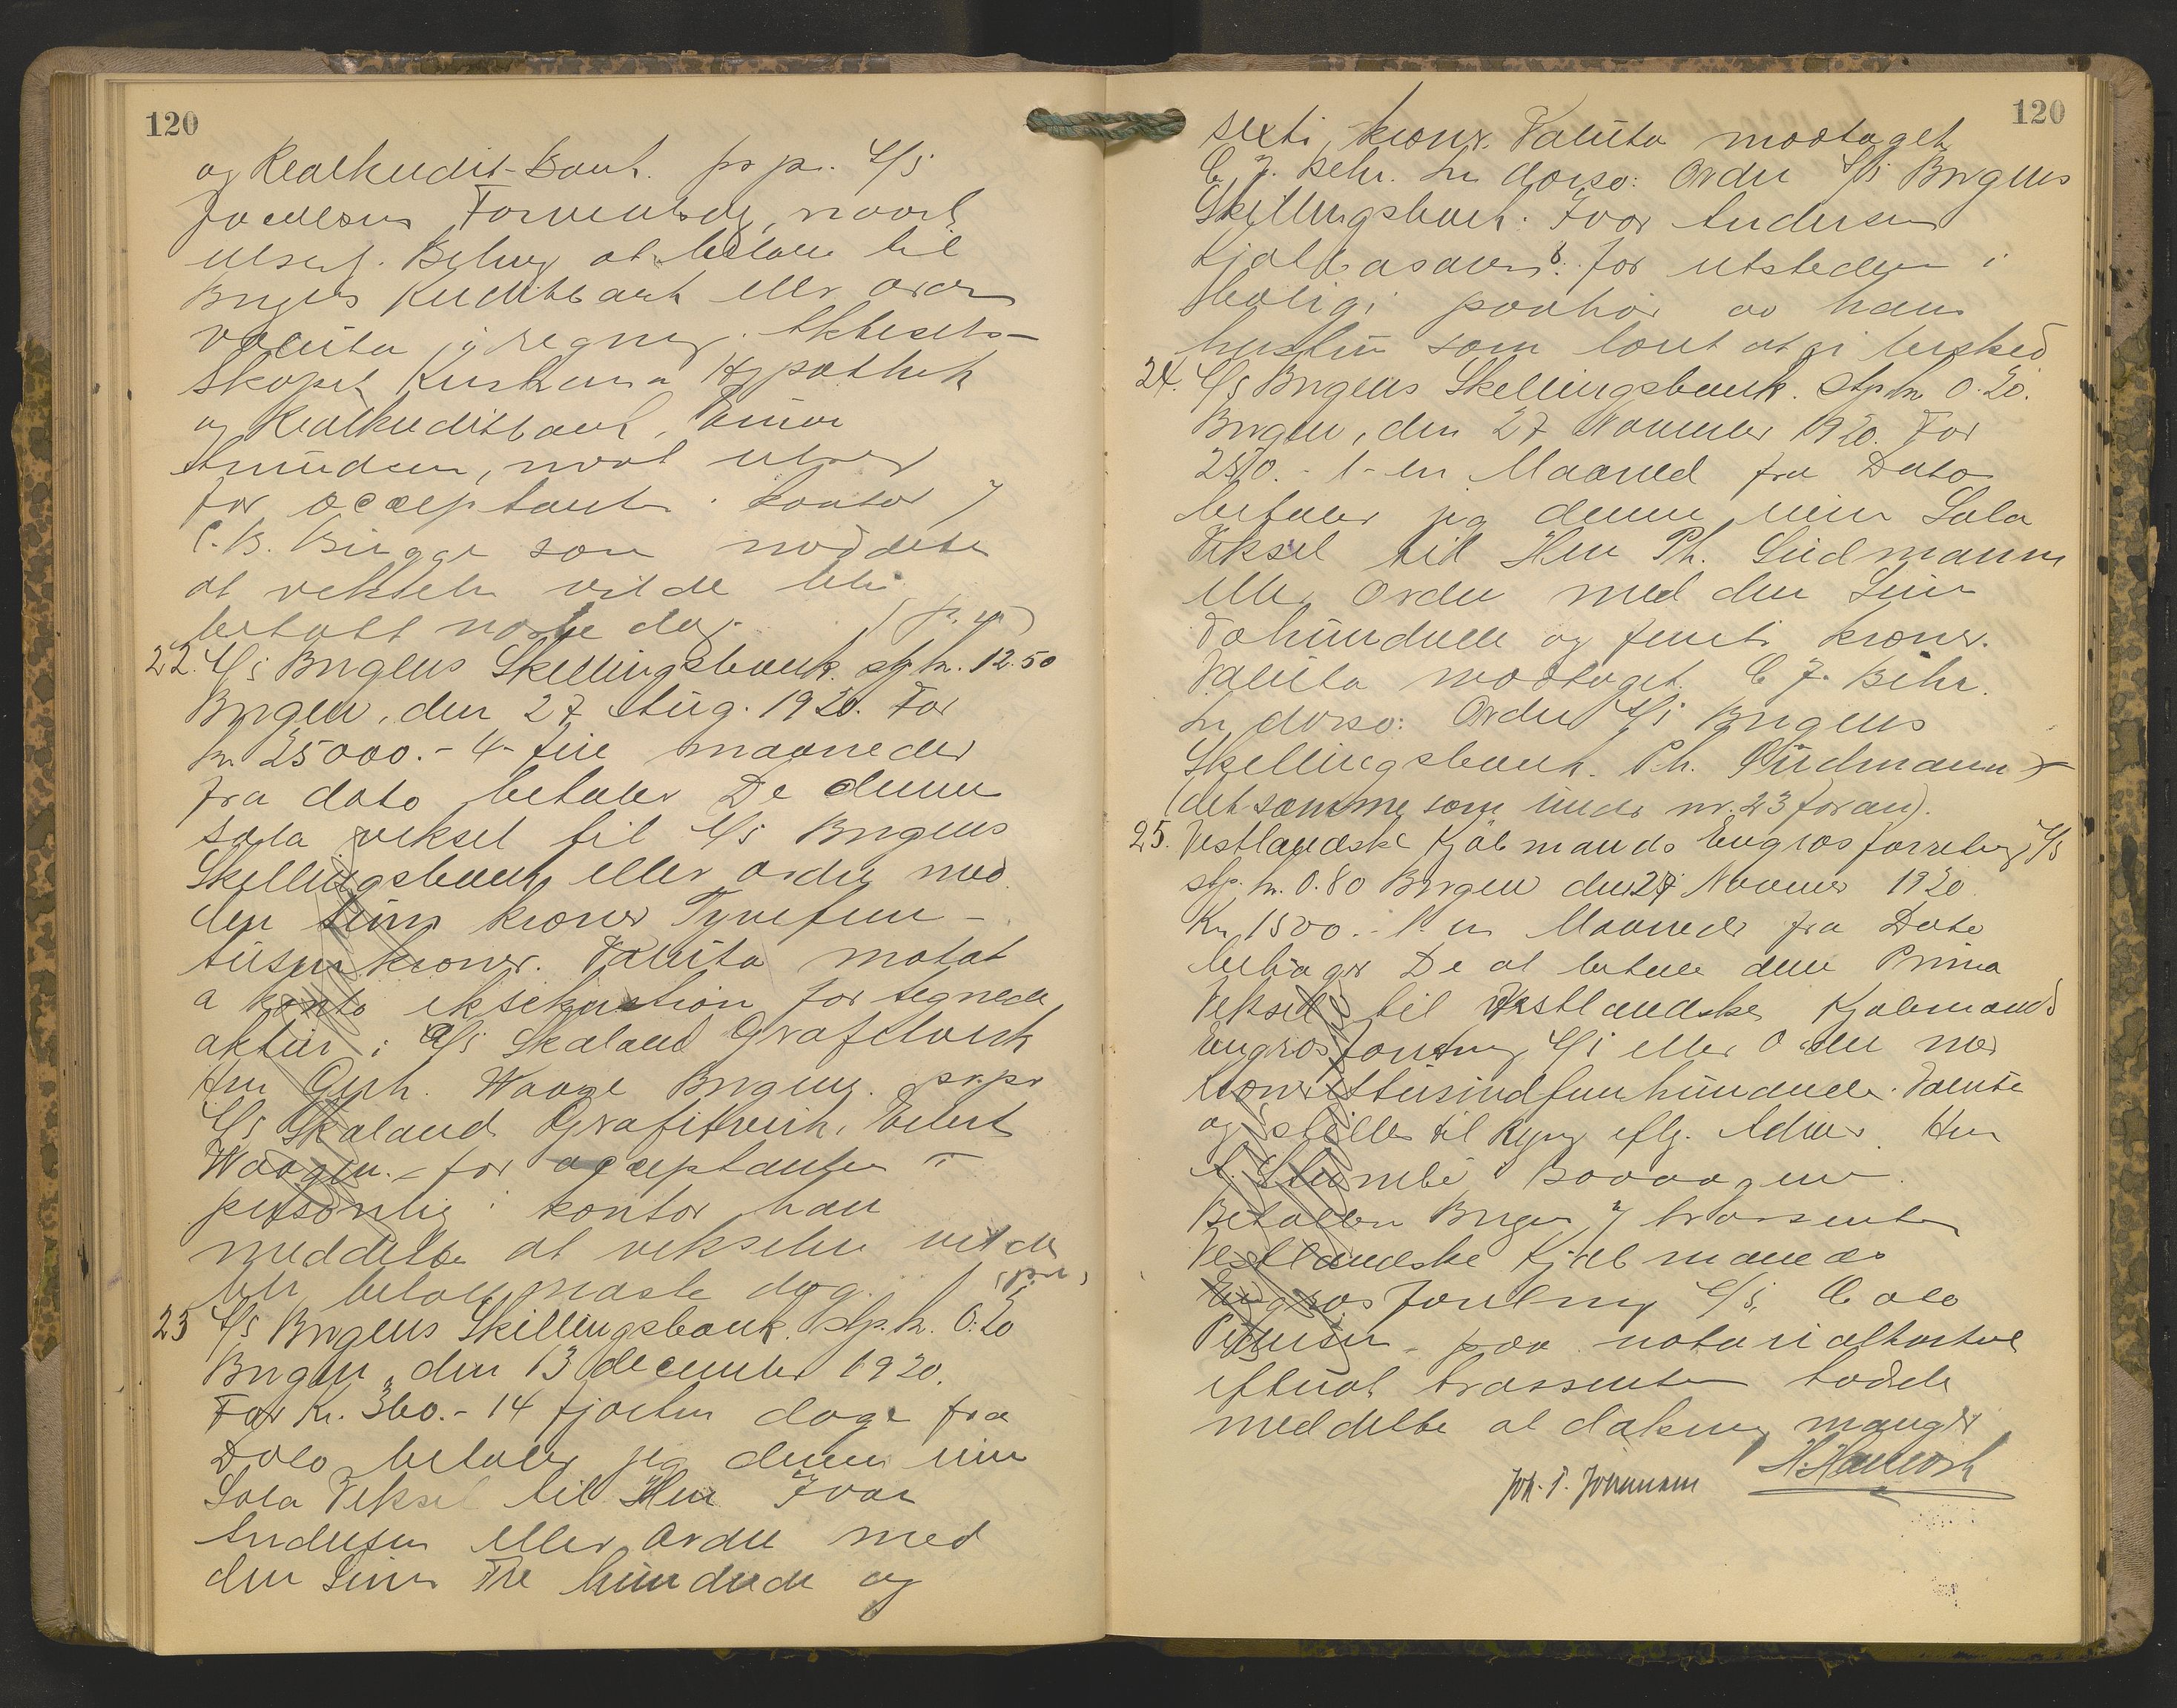 120
og Realkredit-Bank. pr pr. A/S
Jacobsens Forretning, noval
utsen. Behag at betale til
Bergens Kreditbank eller ordre
valuta i regning. Aktiesel-
skapet Kristiania Hypothek
og Realkreditbank, Einar
Amundsen, noval utsen
for acceptanten i kontor J
C. B. Bugge som meddelte
at vekselen vilde bli
betalt næste dag. (p. u.)
22. A/S Bergens Skillingsbank. stp. kr. 12.50
Bergen, den 27 Aug. 1920. For
kr. 25000.- 4- fire maaneder
fra dato betaler De denne
sola veksel til A/S Bergens
Skillingsbank eller ordre med
den sum kroner Tyvefem-
tusen kroner. Valuta motat
a konto for tegnede
aktier i A/S Skaland Grafitverk
Herr Gerh. Waage Bergen. pr. pr
A/S Skaland Grafitverk, Eilert
Waagen. - for acceptanten
personlig i kontor han
meddelte at vekselen vilde
bli betalt næste dag. (p. u.)
23 A/S Bergens Skillingsbank. Stp. kr. 0.20
Bergen, den 13 december 1920.
For Kr. 360.- 14 fjorten dage fra
Dato betaler jeg denne min
Sola Veksel til Herr Ivar
Andersen eller Ordre med
den Sum Tre hundrede og
120
sexti kroner. Valuta modtaget
C. J. Behr. In dorso: Ordre A/S Bergens
Skillingsbank. Ivar Andersen
for utstederen i
bolig i paahør av hans
hustru som lovet at gi besked
24. A/S Bergens Skillingsbank. Stp. kr. 0.20.
Bergen, den 27 November 1920. For
250.- 1- en Maaned fra Dato
betaler jeg denne min Sola
Veksel til Herr Ph. Lüdmann
eller Ordre med den Sum
Tohundrede og femti kroner.
Valuta modtaget. C J. Behr.
In dorso: Ordre A/S Bergens
Skillingsbank. Ph. Lüdmann
(det samme som under nr. 23 foran).
25. Vestlandske Kjøbmands Engrosforretning A/S
stp. kr. 0.80 Bergen den 27 November 1920
Kr. 1500.- 1. en Maaned fra Dato
behager De at betale denne Prima
Veksel til Vestlandske Kjøbmands
Engrosforretning A/S eller Ordre med
Kroner Ettusindfemhundrede. Valuta
og stilles til Regng eflg. Advis. Herr
Betalbar Bergen J trassenten
Vestlandske Kjøbmands
Engrosforretning A/S,
Petersen - paa notarialkontoret
efterat trassenten hadde
meddelte at dækning mangler
Joh. T. Johannesen